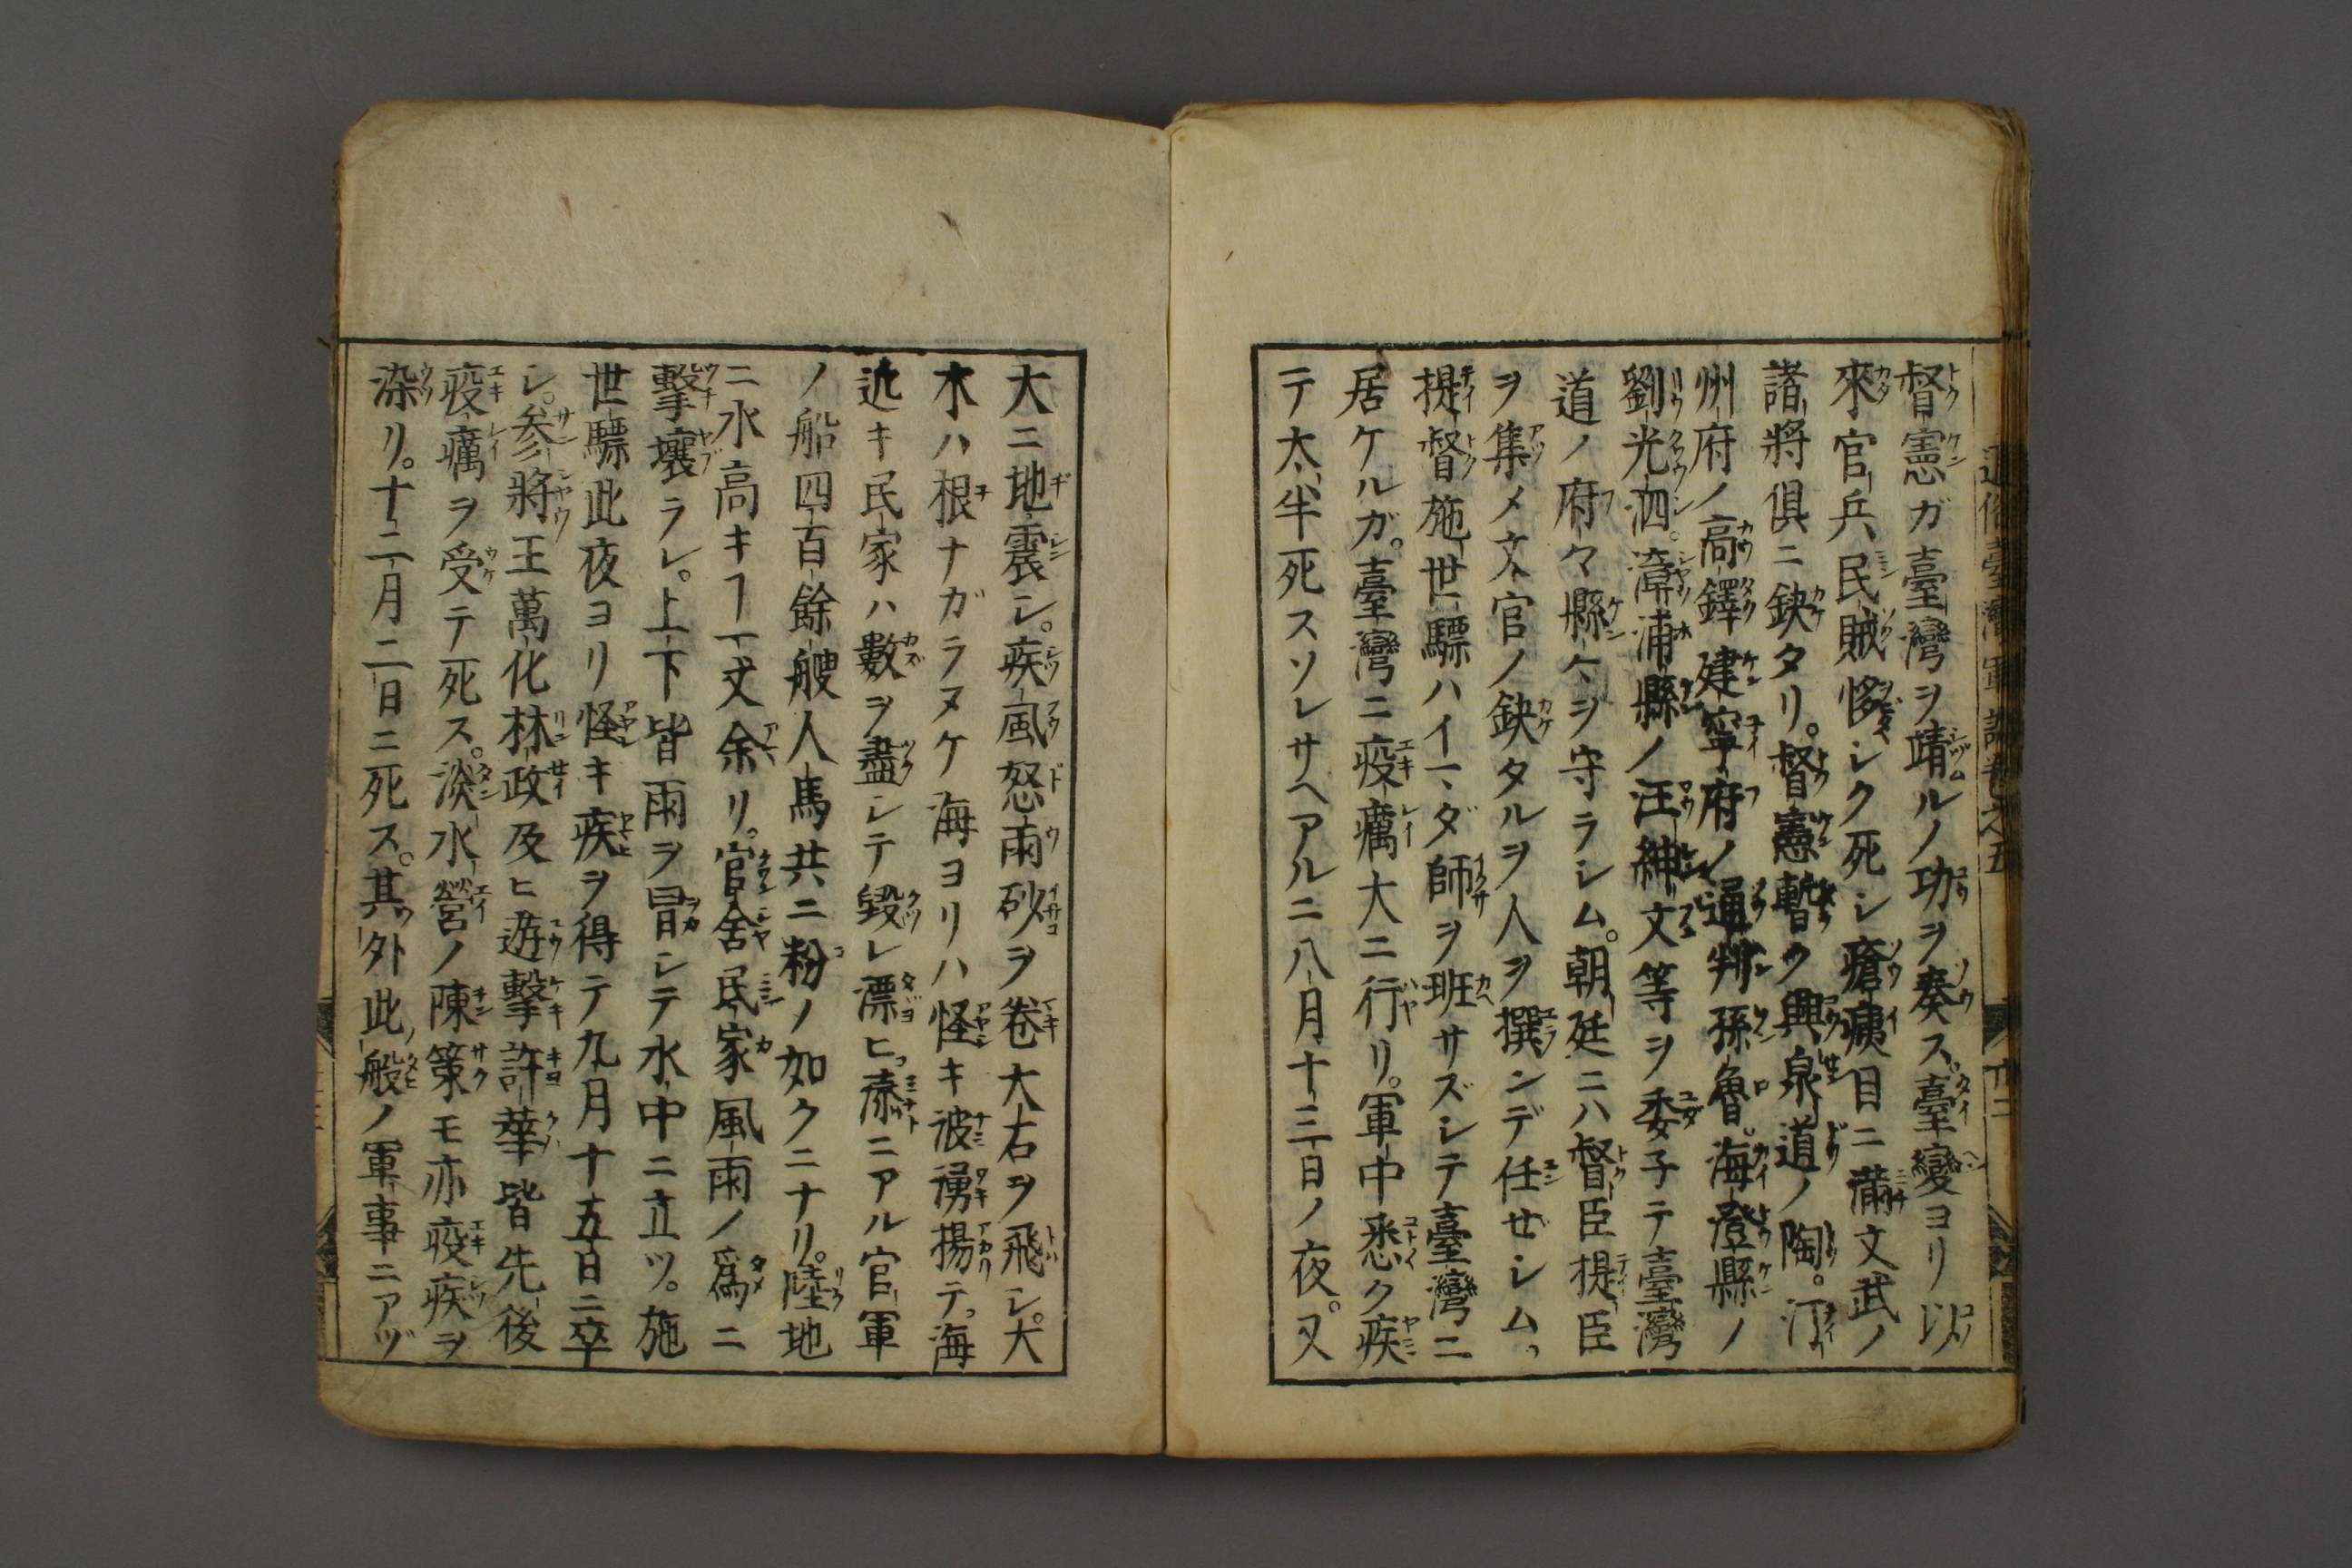 督憲ガ臺灣ヲ靖ルノ功ヲ奏ス。臺變ヨリ以
來官兵民賊夥シク死シ瘡痍目ニ滿文武ノ
諸將俱ニ鈌タリ。督憲暫ク興泉道ノ陶。汀
州府ノ高鐸建寧府ノ通判孫魯。海澄縣ノ
劉光泗。漳浦縣ノ汪紳文等ヲ委子テ臺灣
道ノ府々縣々ヲ守ラシム。朝廷ニハ督臣提臣
ヲ集メ文官ノ鈌タルヲ人ヲ撰ンデ任ゼシム。
提督施世驃ハイマダ師ヲ班サズシテ臺灣ニ
居ケルガ。臺灣ニ疫癘大ニ行リ。軍中悉ク疾
テ太半死スソレサヘアルニ八月十三日ノ夜。又
大ニ地震シ。疾風怒雨砂ヲ卷大石ヲ飛シ。大
木ハ根ナガラヌケ海ヨリハ怪キ波湧揚テ。海
近キ民家ハ數ヲ盡シテ毀レ漂ヒ。湊ニアル官軍
ノ船四百餘艘人馬共ニ粉ノ如クニナリ。陸地
ニ水高キヿ一丈余リ。官舍民家風雨ノ爲ニ
擊壞ラレ。上下皆雨ヲ冒シテ水中ニ立ツ。施
世驃此夜ヨリ怪キ疾ヲ得テ九月十五日ニ卒
シ。参將王萬化林政及ヒ遊擊許華皆先後
疫癘ヲ受テ死ス。淡水營ノ陳策モ亦疫疾ヲ
染リ。十二月二日ニ死ス。其外此般ノ軍事ニアヅ